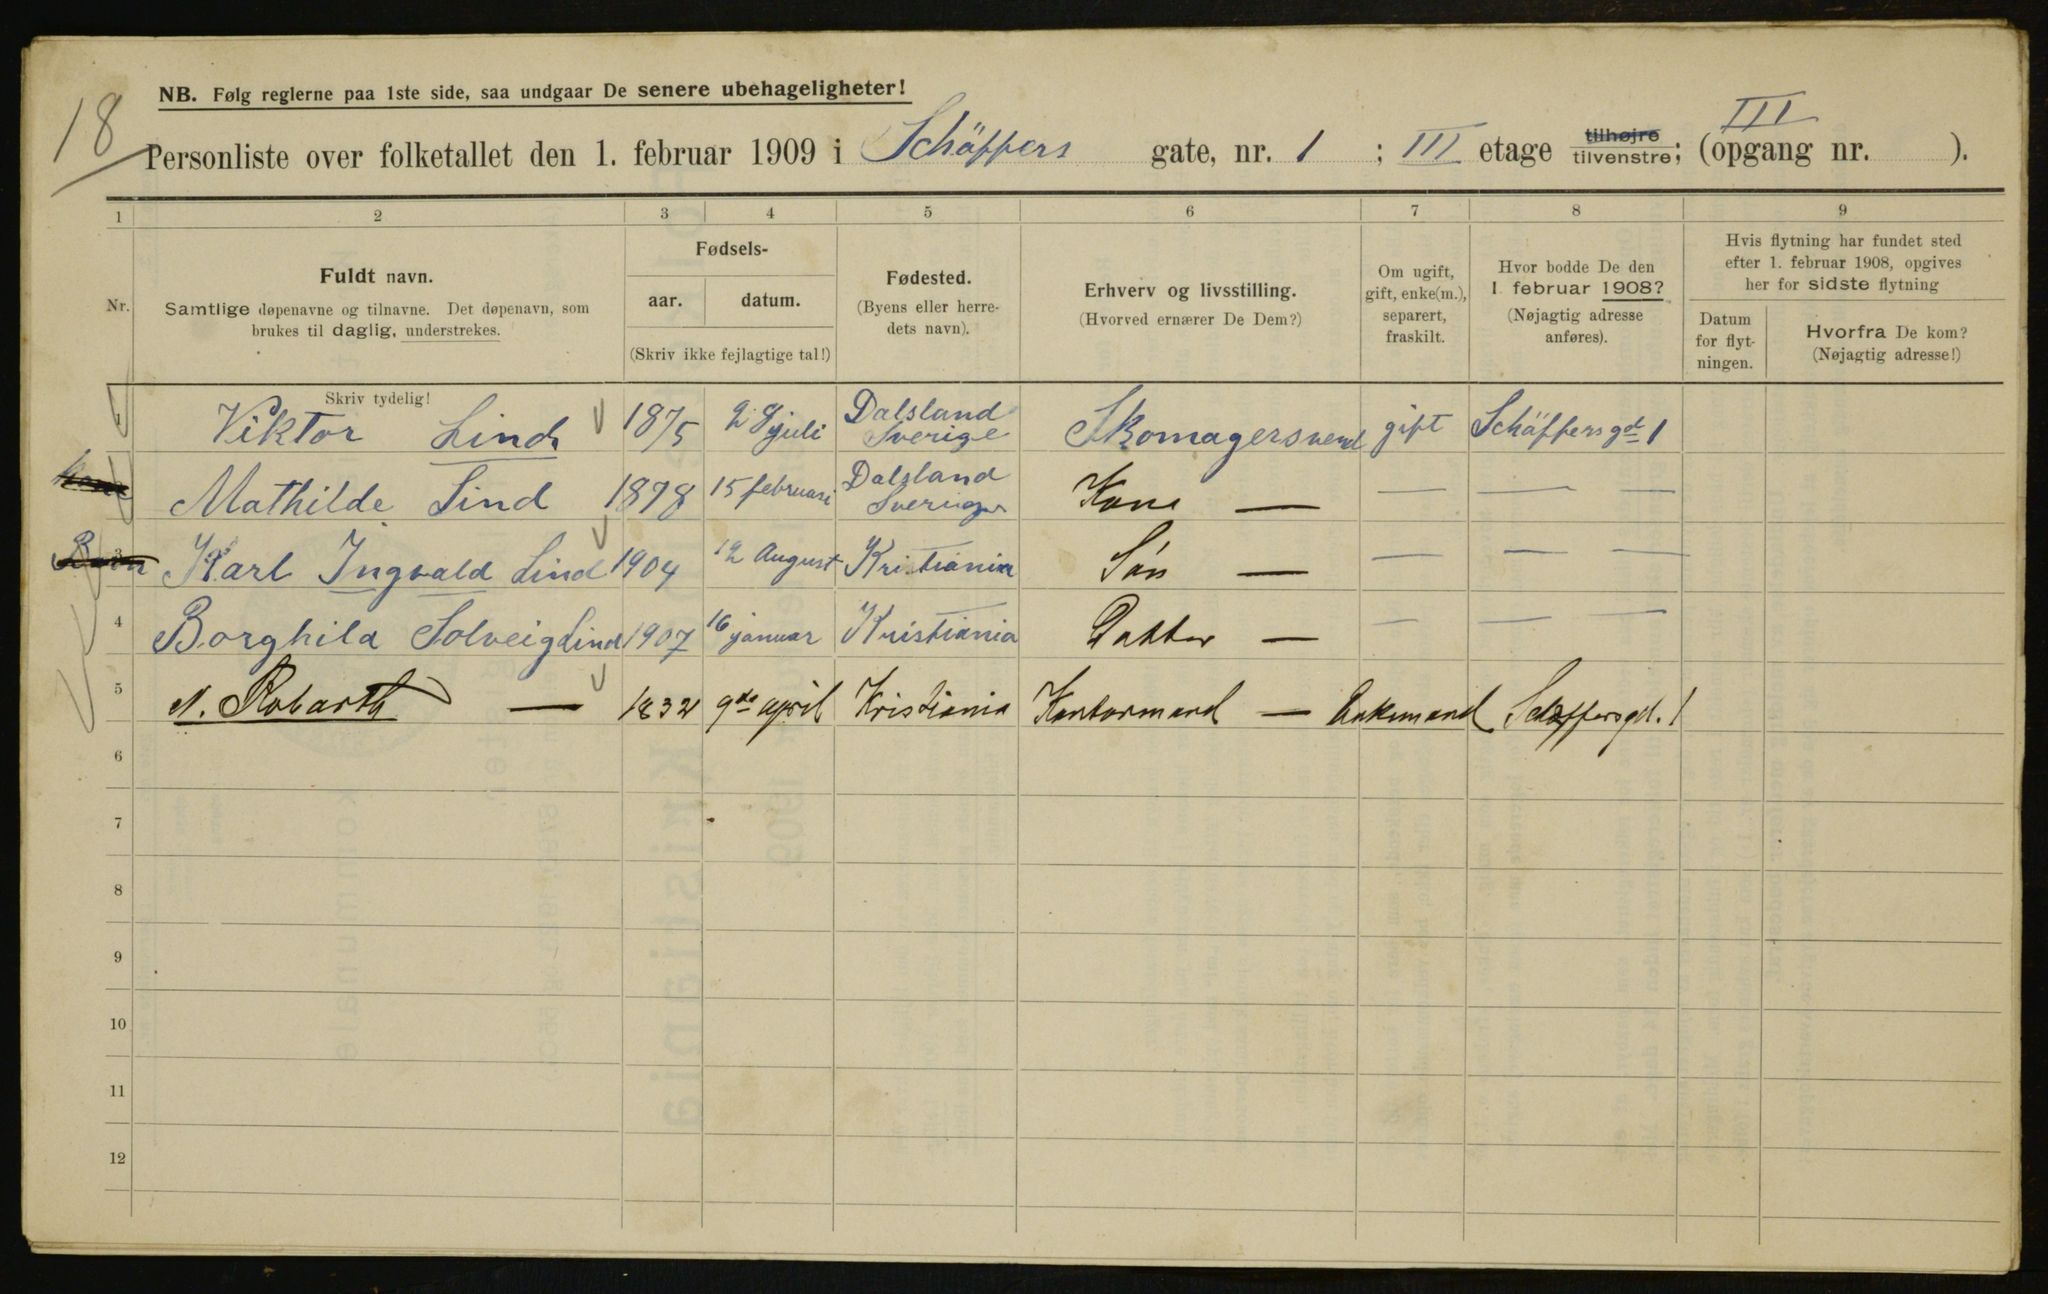 18
NB. Følg reglerne paa 1ste side, saa undgaar De senere ubehageligheter!
Personliste over folketallet den 1. februar 1909 i Schäffers gate, nr. 1 ; III etage tilhøjre tilvenstre; (opgang nr. III ).
1 2 3 4 5 6 7 8 9
Nr.
Fuldt navn.
Samtlige døpenavne og tilnavne. Det døpenavn, som
brukes til daglig, understrekes.
Fødsels-
aar. datum.
(Skriv ikke fejlagtige tal!)
Fødested.
(Byens eller herre-
dets navn).
Erhverv og livsstilling.
(Hvorved ernærer De Dem?)
Om ugift,
gift, enke(m.),
separert,
fraskilt.
Hvor bodde De den
1. februar 1908?
(Nøjagtig adresse
anføres).
Hvis flytning har fundet sted
efter 1. februar 1908, opgives
her for sidste flytning
Datum
for flyt-
ningen.
Hvorfra De kom?
(Nøjagtig adresse!)
Skriv tydelig!
1 Viktor Lind 1875 28 juli Dalsland Sverige Skomagersvend gift Schäffersgd 1
Mathilde Lind 1878 15 februari Dalsland Sverige Kone — — — —
3 Karl Ingvald Lind 1904 12 August Kristiania Søn — — — —
4 Borghild Solveig Lind 1907 16 januar Kristiania Datter — — — —
5 N. Robarth — 1832 9de april Kristiania Kontormand — Enkemand Schæffersgd. 1
6
7
8
9
10
11
12